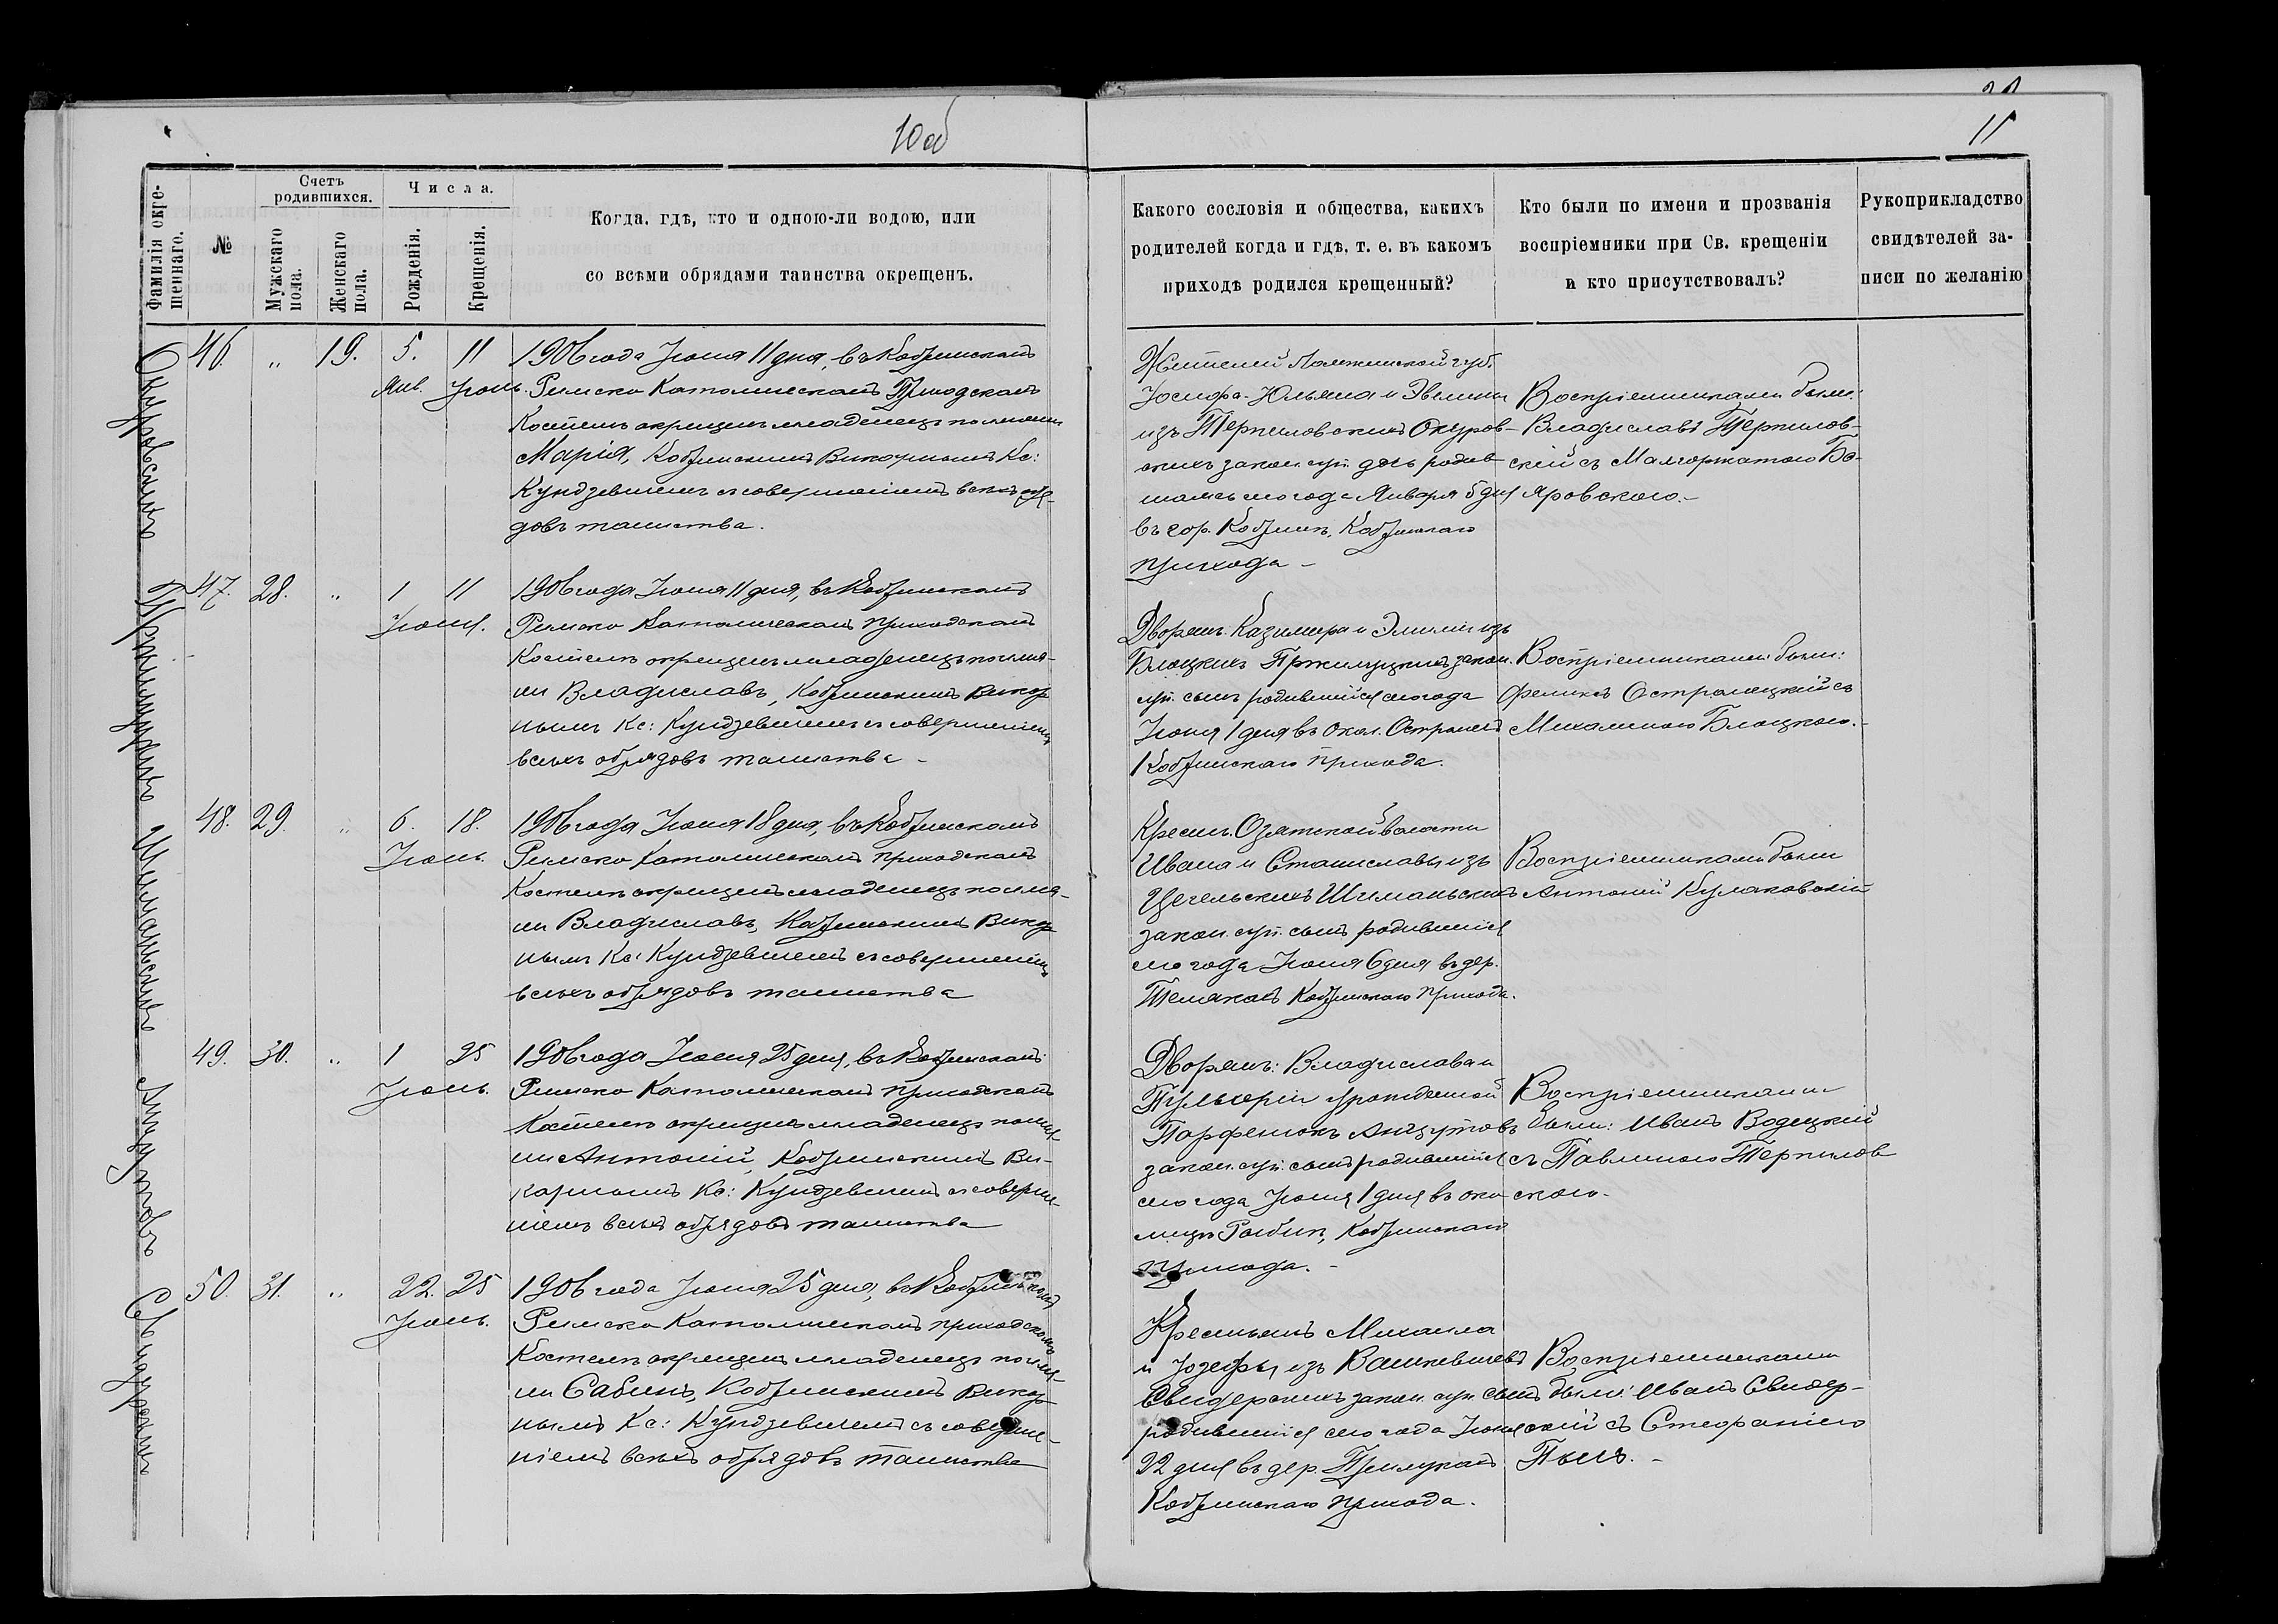 10об
11
Фамилія окре-
щеннаго.
№
Счетъ
родившихся.
Мужскаго
пола.
Женскаго
пола.
Числа.
Рожденія.
Крещенія.
Когда, гдѣ, кто и одною-ли водою, или
со всѣми обрядами таинства окрещенъ.
Какого сословія и общества, какихъ
родителей когда и гдѣ, т. е. въ какомъ
приходѣ родился крещенный?
Кто были по имени и прозванія
воспріемники при Св. крещеніи
и кто присутствовалъ?
Рукоприкладство
свидѣтелей за-
писи по желанію
Окуровскихъ
46. „ 19. 5. 11
Янв. Іюнь.
1906 года Іюня 11 дня, въ Кобринскомъ
Римско Католическомъ Приходскомъ
Костелѣ окрещенъ младенецъ по имени
Марія, Кобринскимъ Викарнымъ Кс:
Кундзевичемъ съ совершеніемъ всѣхъ обря-
довъ таинства.
Жителей Ломжинской губ.
Іосифа-Юльяна и Эвелины
изъ Терпиловскихъ Окуров-
скихъ закон. суп. дочь родив-
шаяся сего года Января 5 дня
въ гор. Кобринѣ, Кобринскаго
прихода -
Воспріемниками были:
Владиславъ Терпилов-
скій съ Малгоржатою Бо-
яровскою.-
Пржилуцкихъ
47. 28. „ 1 11
Іюня.
1906 года Іюня 11 дня, въ Кобринскомъ
Римско Католическомъ приходскомъ
Костелѣ окрещенъ младенецъ по име-
ни Владиславъ, Кобринскимъ Викар
нымъ Кс: Кундзевичемъ съ совершеніемъ
всѣхъ обрядовъ таинства -
Дворянъ: Казимира и Эмиліи изъ
Блоцкихъ Пржилуцкихъ закон.
суп. сынъ родившійся сего года
Іюня 1 дня въ окол. Остромечѣ
Кобринскаго прихода.
Воспріемниками были:
Феликсъ Остромецкій съ
Михалиною Блоцкою.-
Шиманьскихъ
48. 29. „ 6. 18.
Іюнь.
1906 года Іюня 18 дня, въ Кобринскомъ
Римско Католическомъ приходскомъ
Костелѣ окрещенъ младенецъ по име-
ни Владиславъ, Кобринскимъ Викар
нымъ Кс: Кундзевичемъ съ совершеніемъ
всѣхъ обрядовъ таинства
Крестьянъ Озятской волости
Ивана и Станиславы изъ
Цегельскихъ Шиманьскихъ
закон. суп. сынъ родившійся
сего года Іюня 6 дня въ дер.
Кобринскаго прихода.
Воспріемникомъ былъ
Антоній Кулаковскій
Анцутовъ
49. 30. „ 1 25
Іюнь.
1906 года Іюня 25 дня, въ Кобринскомъ
Римско Католическомъ приходскомъ
Костелѣ окрещенъ младенецъ по име-
ни Антоній, Кобринскимъ Ви-
карнымъ Кс: Кундзевичемъ съ соверше-
ніемъ всѣхъ обрядовъ таинства
Дворянъ: Владислава и
Пульхеріи урожденной
Парфенюкъ Анцутовъ
закон. суп. сынъ родившійся
сего года Іюня 1 дня въ око
лицѣ Рыбнѣ, Кобринскаго
прихода. -
Воспріемниками
были: Иванъ Водецкій
съ Павлиною Терпилов
скою-
Свидерскихъ
50. 31. „ 22. 25
Іюнь.
1906 года Іюня 25 дня, въ Кобринскомъ
Римско Католическомъ приходскомъ
Костелѣ окрещенъ младенецъ по име-
ни Сабинъ, Кобринскимъ Викар
нымъ Кс: Кундзевичемъ съ соверше-
ніемъ всѣхъ обрядовъ таинства
Крестьянъ Михаила
и Юзефы изъ Вашкевичевъ
Свидерскихъ закон. суп. сынъ
родившійся сего года Іюня
22 дня въ дер. Прилукахъ
Кобринскаго прихода.
Воспріемниками
были: Иванъ Свидер-
скій съ Стефаніею
Пыль. -